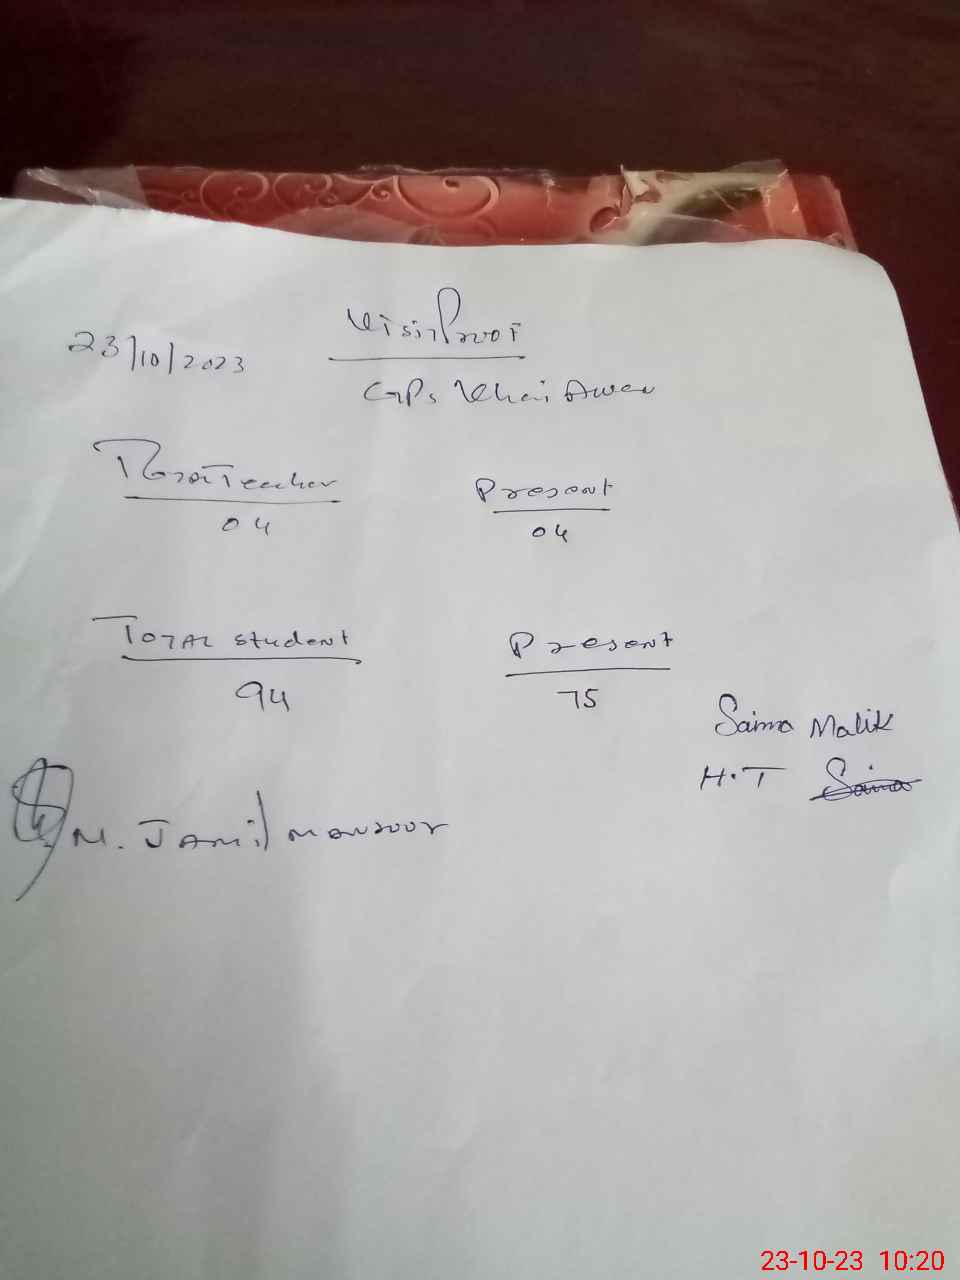 23/10/2023 Visit Proof
GPS Khai Awan
Total Teacher Present
04 04
Total student Present
94 75
Saima Malik
H.T Saima
M. Jamil Mansoor
23-10-23 10:20